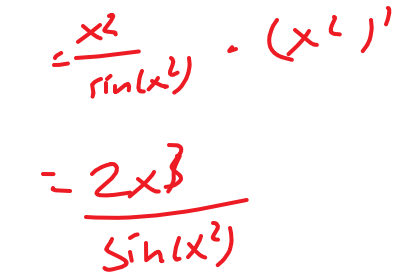 = x²/sin(x²) · (x²)'
= 2x³/sin(x²)